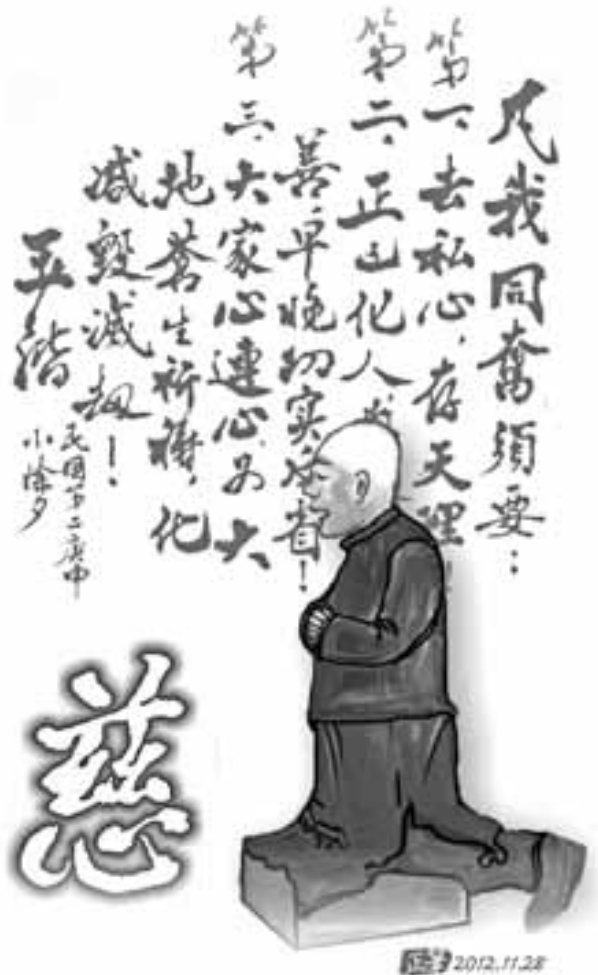 凡我同奮須要：
第一、去私心，存天理！
第二、正己化人
善，早晚切實省！
第三、大家心連心，为大
地蒼生祈禱，化
減毀滅劫！
玉階
民國第二庚申
小除夕
慈
2012.11.28